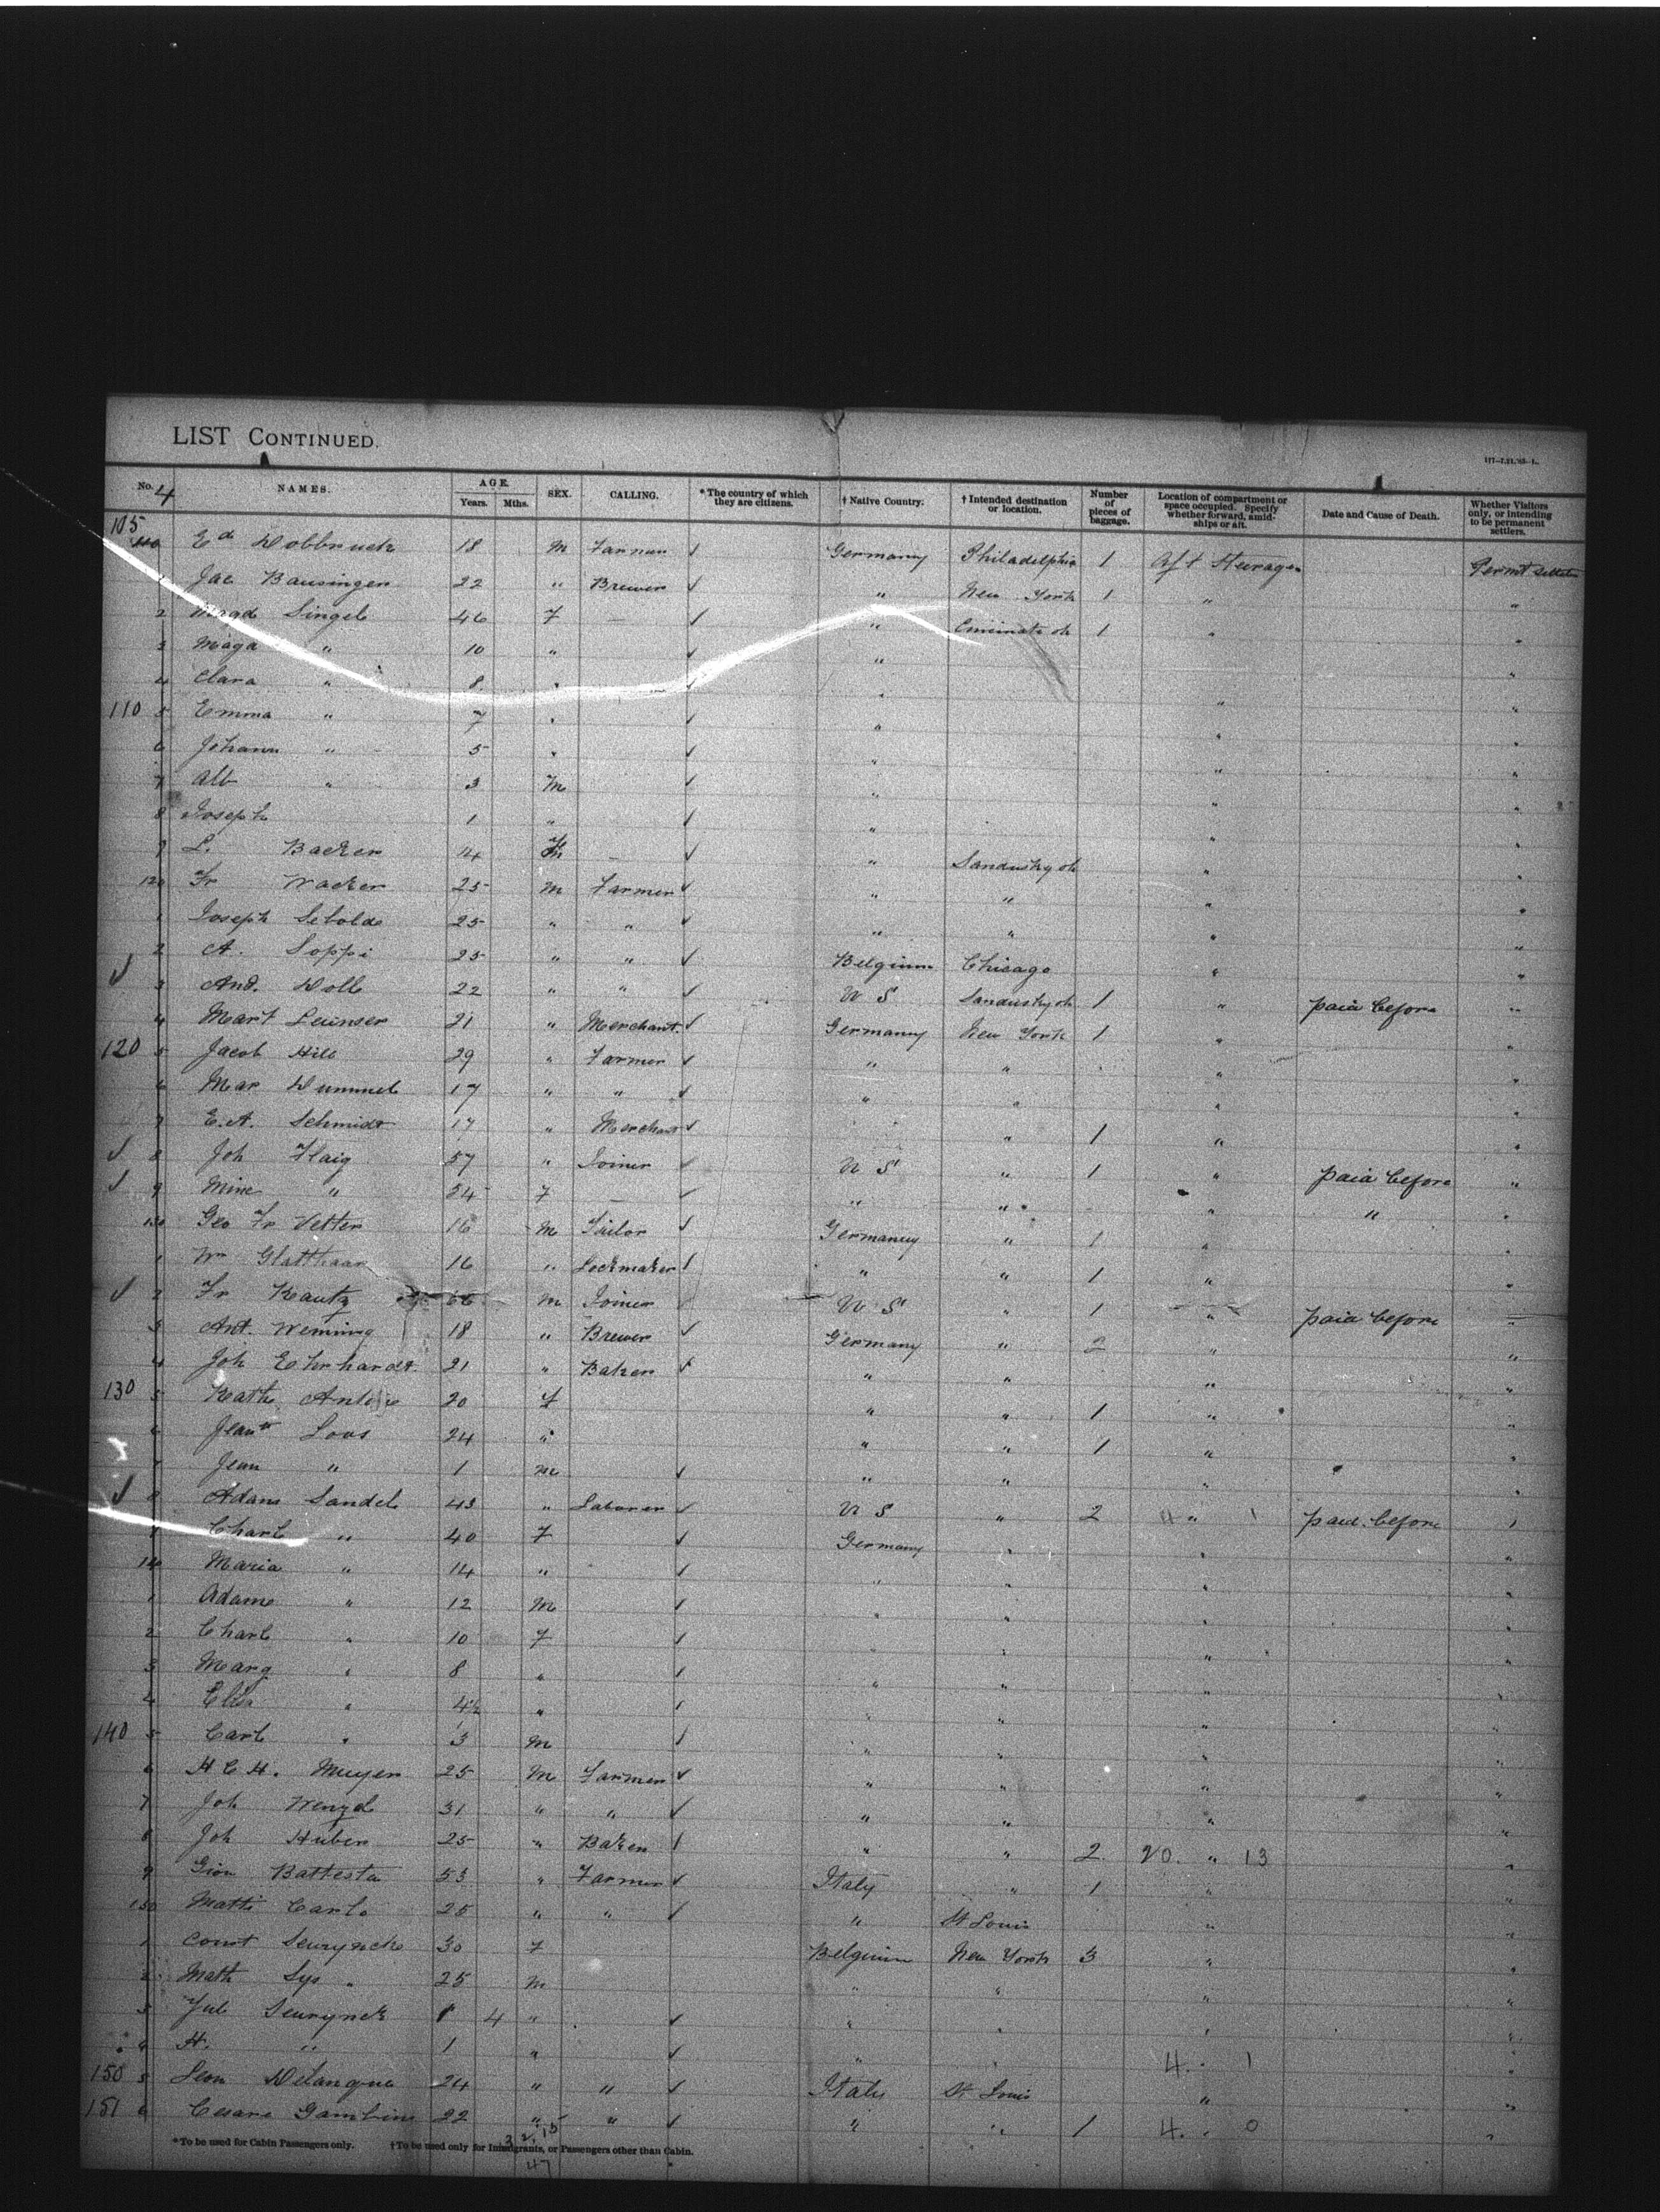 LIST CONTINUED.
117-7.21.'93-1.
No. 4 NAMES. AGE. Years. Mths. SEX. CALLING. *The country of which they are citizens. †Native Country. †Intended destination or location. Number of pieces of baggage. Location of compartment or space occupied. Specify whether forward, amidships or aft. Date and Cause of Death. Whether Visitors only, or intending to be permanent settlers.
105 Ed Dobbruck 18 M Farmer ✓ Germany Philadelphia 1 Aft Steerage
1 Jac Bausinger 22 " Brewer ✓ " New York 1 " "
2 Magd Singele 46 F — ✓ " 1 " "
3 Magd " 10 " ✓ " "
4 Clara " 8 " ✓ " " "
110 5 Emma " 7 " ✓ " " "
6 Johann " 5 " ✓ " " "
7 Alb " 3 M ✓ " " "
8 Joseph 1 " ✓ " " "
9 L. Backer 14 — ✓ " Sandusky oh " "
120 Fr Wacker 25 M Farmer ✓ " " " "
1 Joseph Sebold 25 " " ✓ " " " "
2 A. Soppi 25 " " ✓ Belgium Chicago " "
✓ 3 And. Doll 22 " " ✓ U S Sandusky oh 1 " paid before "
4 Mart Leinser 21 " Merchant. ✓ Germany New York 1 " "
120 5 Jacob Hill 29 " Farmer ✓ " " " "
6 Mar Dummel 17 " " ✓ " " " "
7 E. A. Schmidt 17 " Merchant ✓ " 1 " "
✓ 8 Joh Flaig 57 " Joiner ✓ U S " 1 " paid before "
✓ 9 Mine " 54 F — ✓ " " " " "
130 Geo Fr Vetter 16 M Tailor ✓ Germany " 1 " "
1 Wm Glatthaar 16 " Lockmaker ✓ " " 1 " "
✓ 2 Fr Kautz 66 M Joiner ✓ U S " 1 " paid before "
3 Ant. Wenning 18 " Brewer ✓ Germany " 2 " "
4 Joh Ehrhardt. 21 " Baker ✓ " " " "
130 5 Kath 20 F " " 1 " "
6 Jean Loos 24 " " " 1 " "
7 Jean " 1 m ✓ " " " "
✓ 8 Adam Sandel 43 " Laborer ✓ U S " 2 4 " 1 paid before "
9 Charl " 40 F ✓ Germany " " "
140 Maria " 14 " ✓ " " " "
1 Adam " 12 M ✓ " " " "
2 Charl " 10 F ✓ " " " "
3 Marg " 8 " ✓ " " " "
4 Elisa " 4½ " ✓ " " " "
140 5 Carl " 3 M ✓ " " " "
6 H C H. Meyer 25 M Farmer ✓ " " " "
7 Joh Wenzel 31 " " ✓ " " " "
8 Joh Huber 25 " Baker ✓ " " 2. 20. " 13 "
9 Giov Battesta 53 " Farmer ✓ Italy " 1 " "
150 Matti Carlo 25 " " ✓ " St Louis " "
1 Const Seurynck 30 F Belgium New York 3 " "
2 Math Sys " 25 M " " " "
3 Jul Seurynck 1 4 " ✓ " " " "
4 H. " 1 " ✓ " " 4. " 1 "
150 5 Leon Delangue 24 " " ✓ Italy St Louis " "
151 6 Cesare Gambini 22 " " ✓ " " 1 4. " 0 "
*To be used for Cabin Passengers only. †To be used only for Immigrants, or Passengers other than Cabin.
47